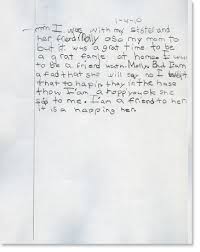 1-4-10
I was with my sister and
her friend Molly also my mom to
but it was a grat time to be
a grat famle at home I wut
to be a friend with Molly. But I am
afrad that she will say no I
that to hapin thay in the hose
thow I am a happy
to me. I am a friend to her
it is a happing her.